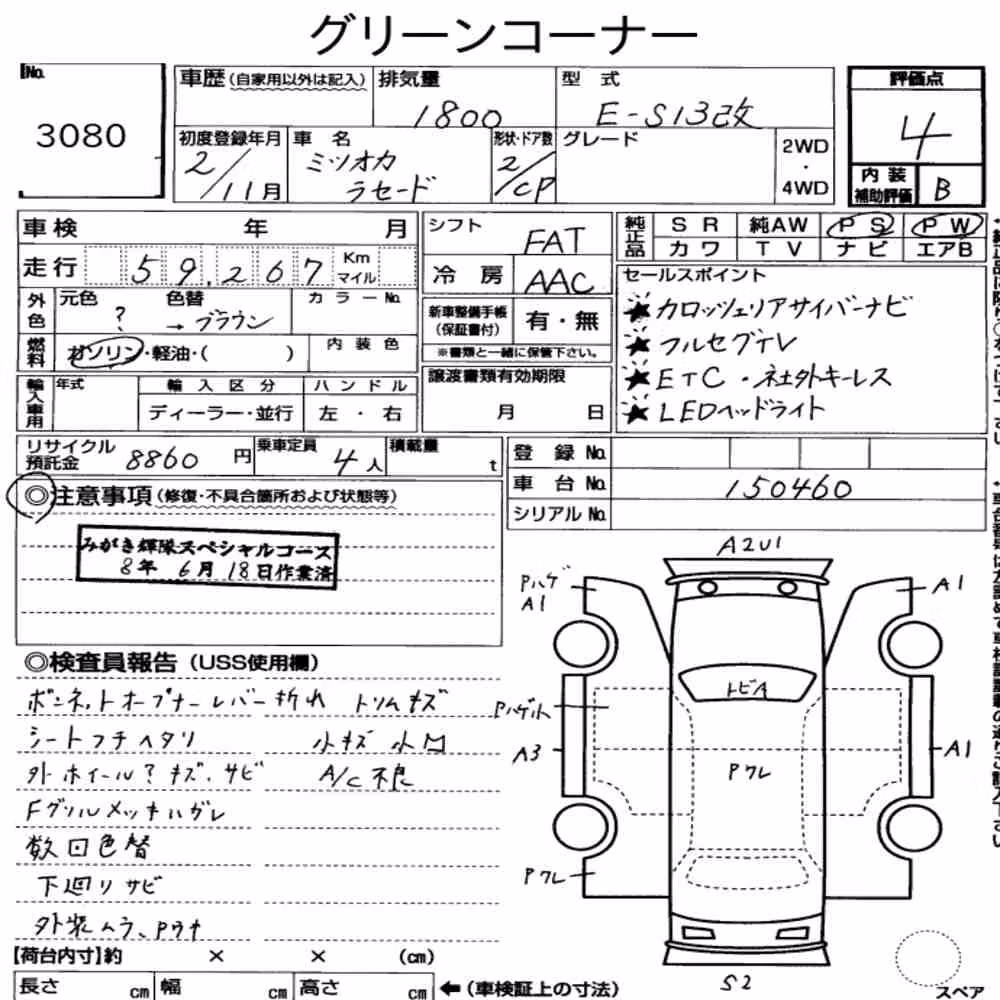 グリーンコーナー
No.
3080
車歴(自家用以外は記入)
排気量
1800
型式
E-S13改
評価点
4
内装
補助評価
B
初度登録年月
2/11月
車名
ミツオカ
ラセード
形状・ドア数
2/CP
グレード
2WD
・
4WD
車検 年 月
走行 59,267 Km マイル
外色
元色 ?
色替 → ブラウン
カラーNo.
燃料
ガソリン・軽油・( )
内装色
輸入車用
年式
輸入区分
ディーラー・並行
ハンドル
左・右
シフト FAT
冷房 AAC
新車整備手帳
(保証書付)
有・無
※書類と一緒に保管下さい。
譲渡書類有効期限
月 日
純正品
SR 純AW PS PW
カワ TV ナビ エアB
セールスポイント
★カロッツェリアサイバーナビ
★フルセグTV
★ETC・社外キーレス
★LEDヘッドライト
リサイクル
預託金
8860円
乗車定員
4人
積載量
t
登録No.
車台No. 150460
シリアルNo.
◎注意事項(修復・不具合箇所および状態等)
みがき輝隊スペシャルコース
8年 6月 18日作業済
◎検査員報告(USS使用欄)
ボンネットオープナーレバー折れ トリムキズ
シートフチヘタリ 小キズ 小凹
外ホイール?キズ、サビ A/C不良
Fグリルメッキハガレ
数回色替
下廻りサビ
外装ムラ、Pワナ
A2U1
Pハゲ
A1
A1
トビA
Pハゲ小
A3
A1
Pクレ
Pクレ
S2
スペア
【荷台内寸】約 × × (cm)
長さ cm 幅 cm 高さ cm ←(車検証上の寸法)